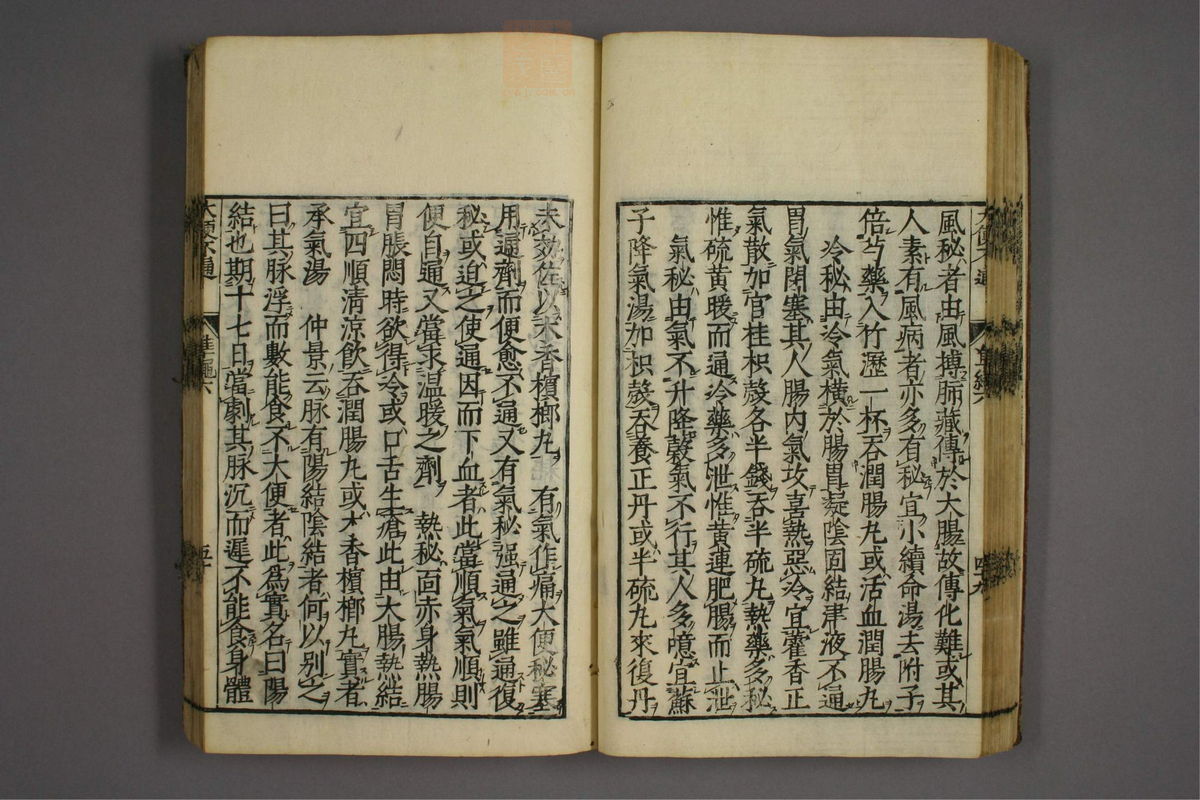 風秘者由風搏肺藏傳於大腸故傳化難或其
人素有風病者亦多有秘宜小續命湯去附子
倍芍藥入竹瀝一杯吞潤腸丸或活血潤腸丸
冷秘由冷氣橫於腸胃凝陰固結津液不通
胃氣閉塞其人腸內氣攻喜熱惡冷宜藿香正
氣散加官桂枳殼各半錢吞半硫丸熱藥多秘
惟硫黃暖而通冷藥多泄惟黃連肥腸而止泄
氣秘由氣不升降穀氣不行其人多噫宜蘇
子降氣湯加枳殼吞養正丹或半硫丸來復丹
未効佐以木香檳榔丸 有氣作痛大便秘塞
用通劑而便愈不通又有氣秘强通之雖通復
秘或迫之使通因而下血者此當順氣氣順則
便自通又當求温暖之劑 熱秘面赤身熱腸
胃脹悶時欲得冷或口舌生瘡此由大腸熱結
宜四順清涼飲吞潤腸丸或木香檳榔丸實者
承氣湯 仲景云脉有陽結陰結者何以別之
曰其脉浮而數能食不大便者此爲實名曰陽
結也期十七日當劇其脉沉而遲不能食身體